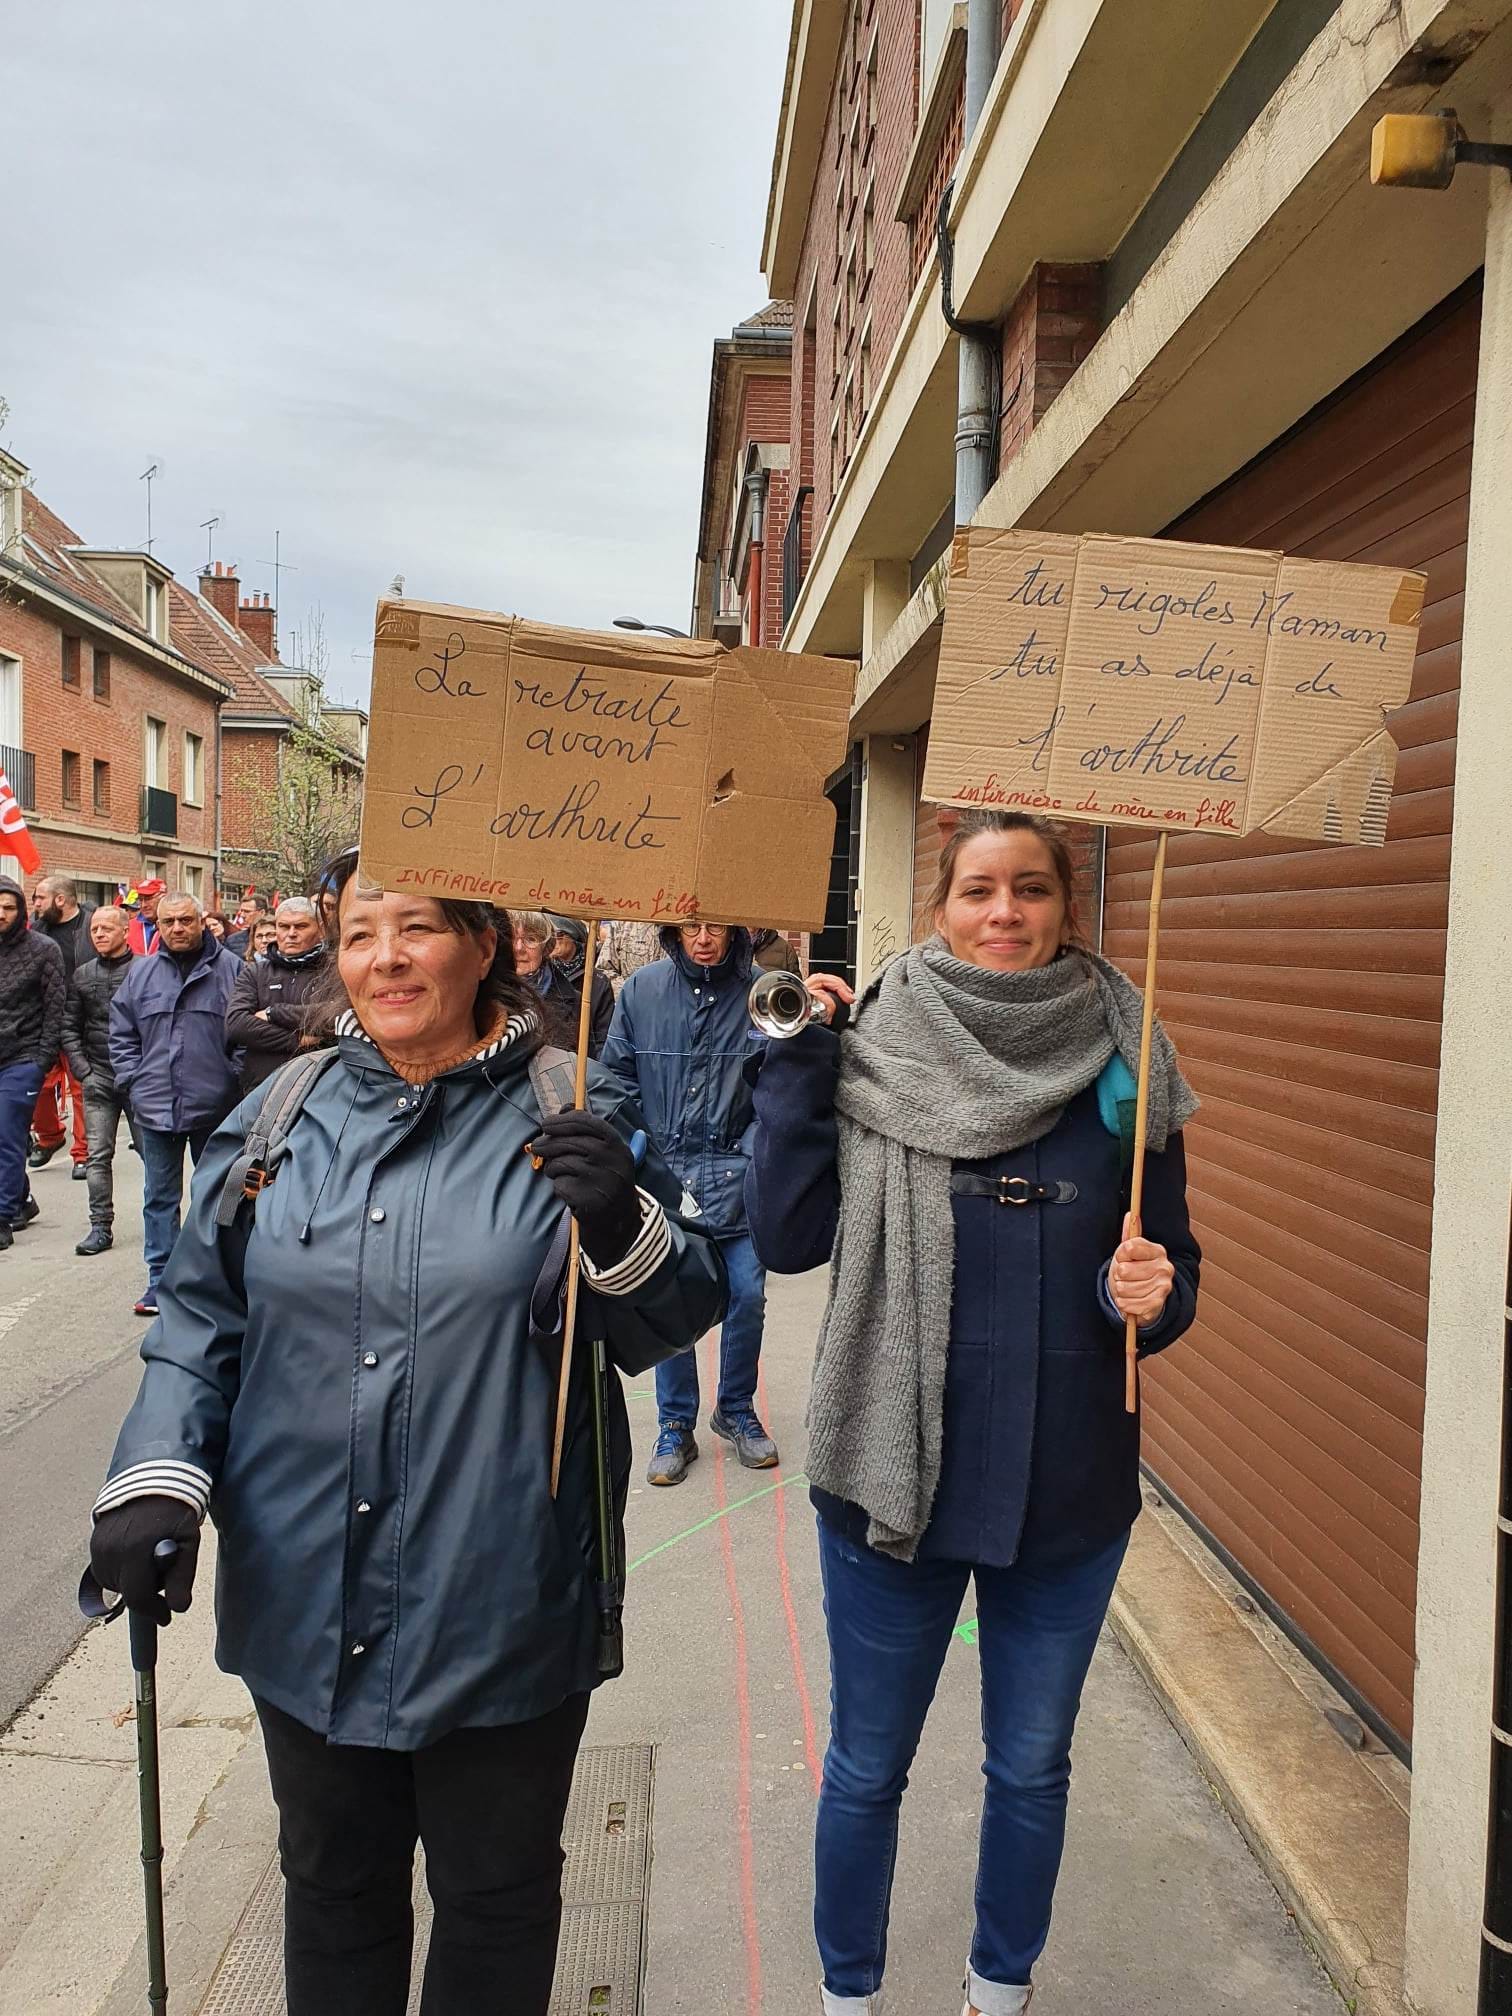 La retraite
avant
L'arthrite
INFIRMIERE de mère en fille
tu rigoles Maman
tu as déjà de
l'arthrite
infirmière de mère en fille